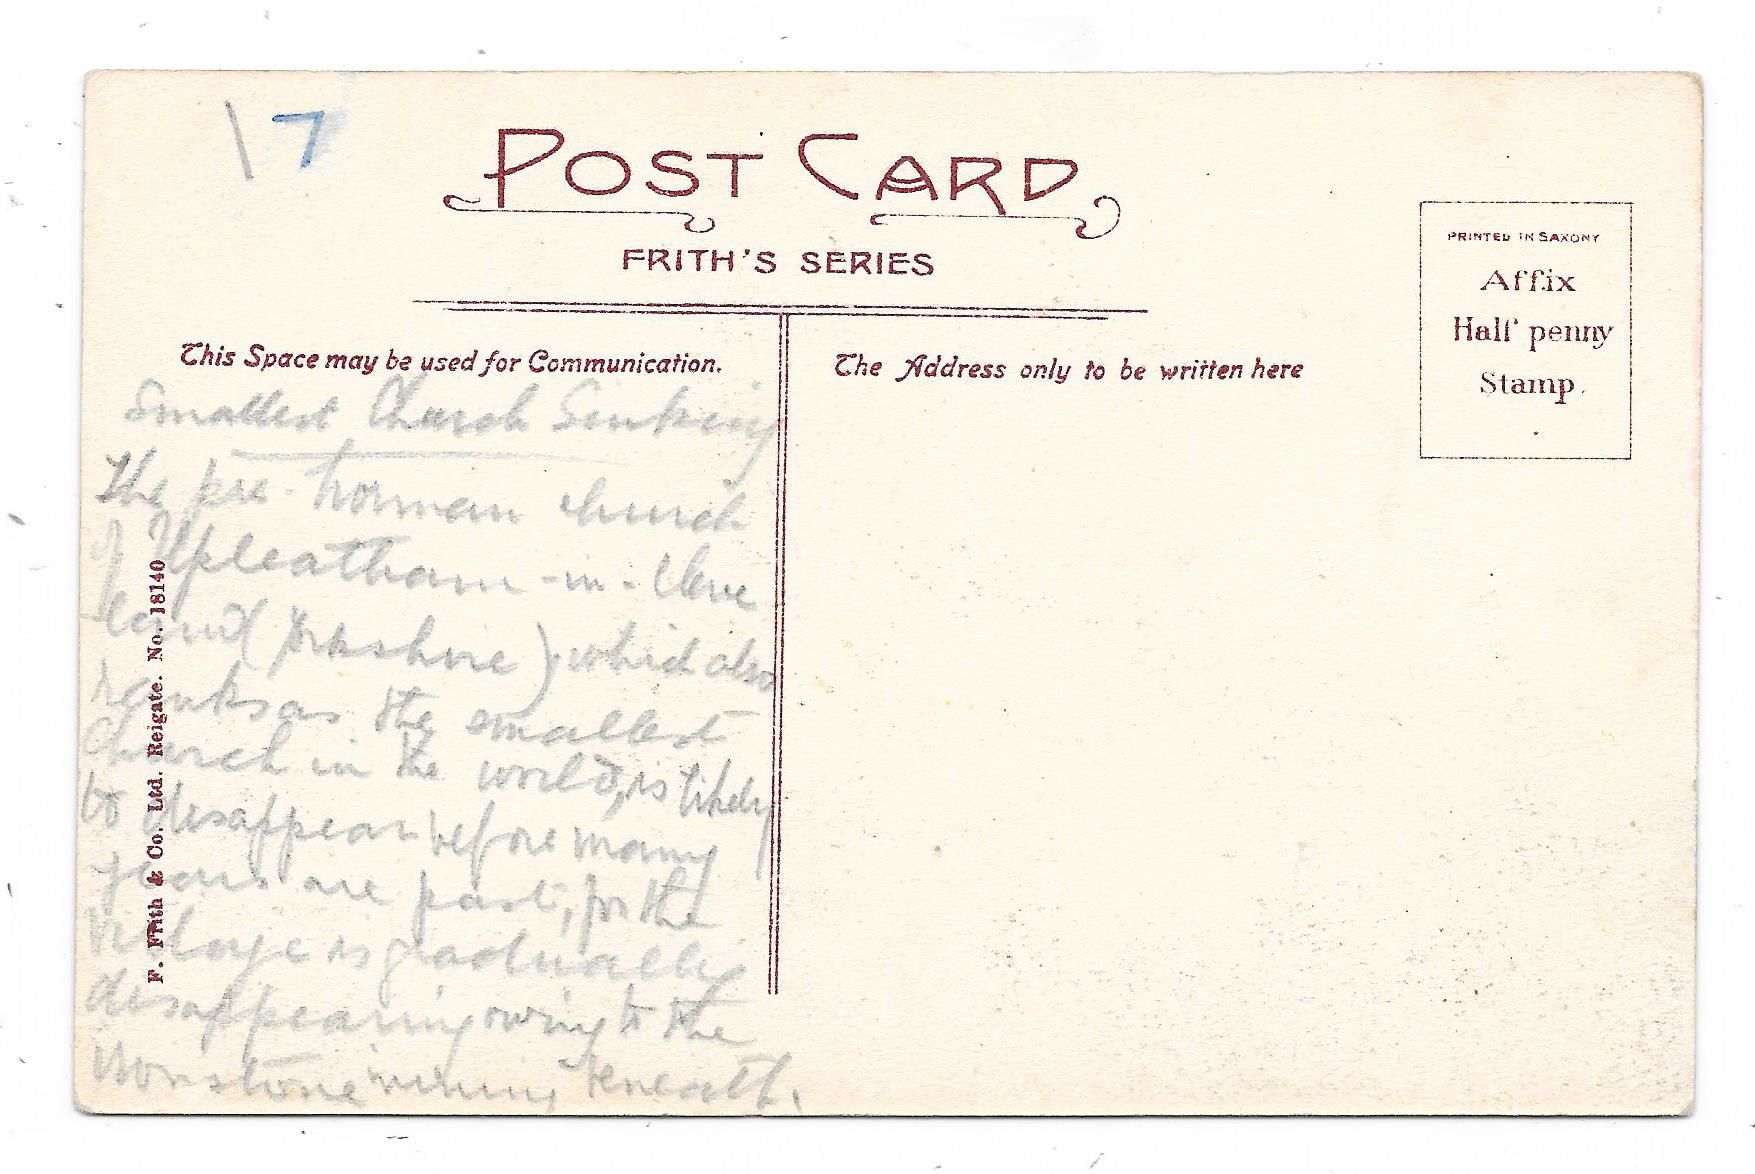 17
POST CARD
FRITH'S SERIES
PRINTED IN SAXONY
Affix
Half penny
Stamp.
This Space may be used for Communication.
The Address only to be written here
Smallest Church Sinking
The pre-Norman church
of Upleatham-in-Cleve
land (Yorkshire), which also
ranks as the smallest
Church in the world, is likely
to disappear before many
years are past, for the
village is gradually
disappearing owing to the
ironstone mining beneath.
F. Frith & Co. Ltd. Reigate. No. 18140